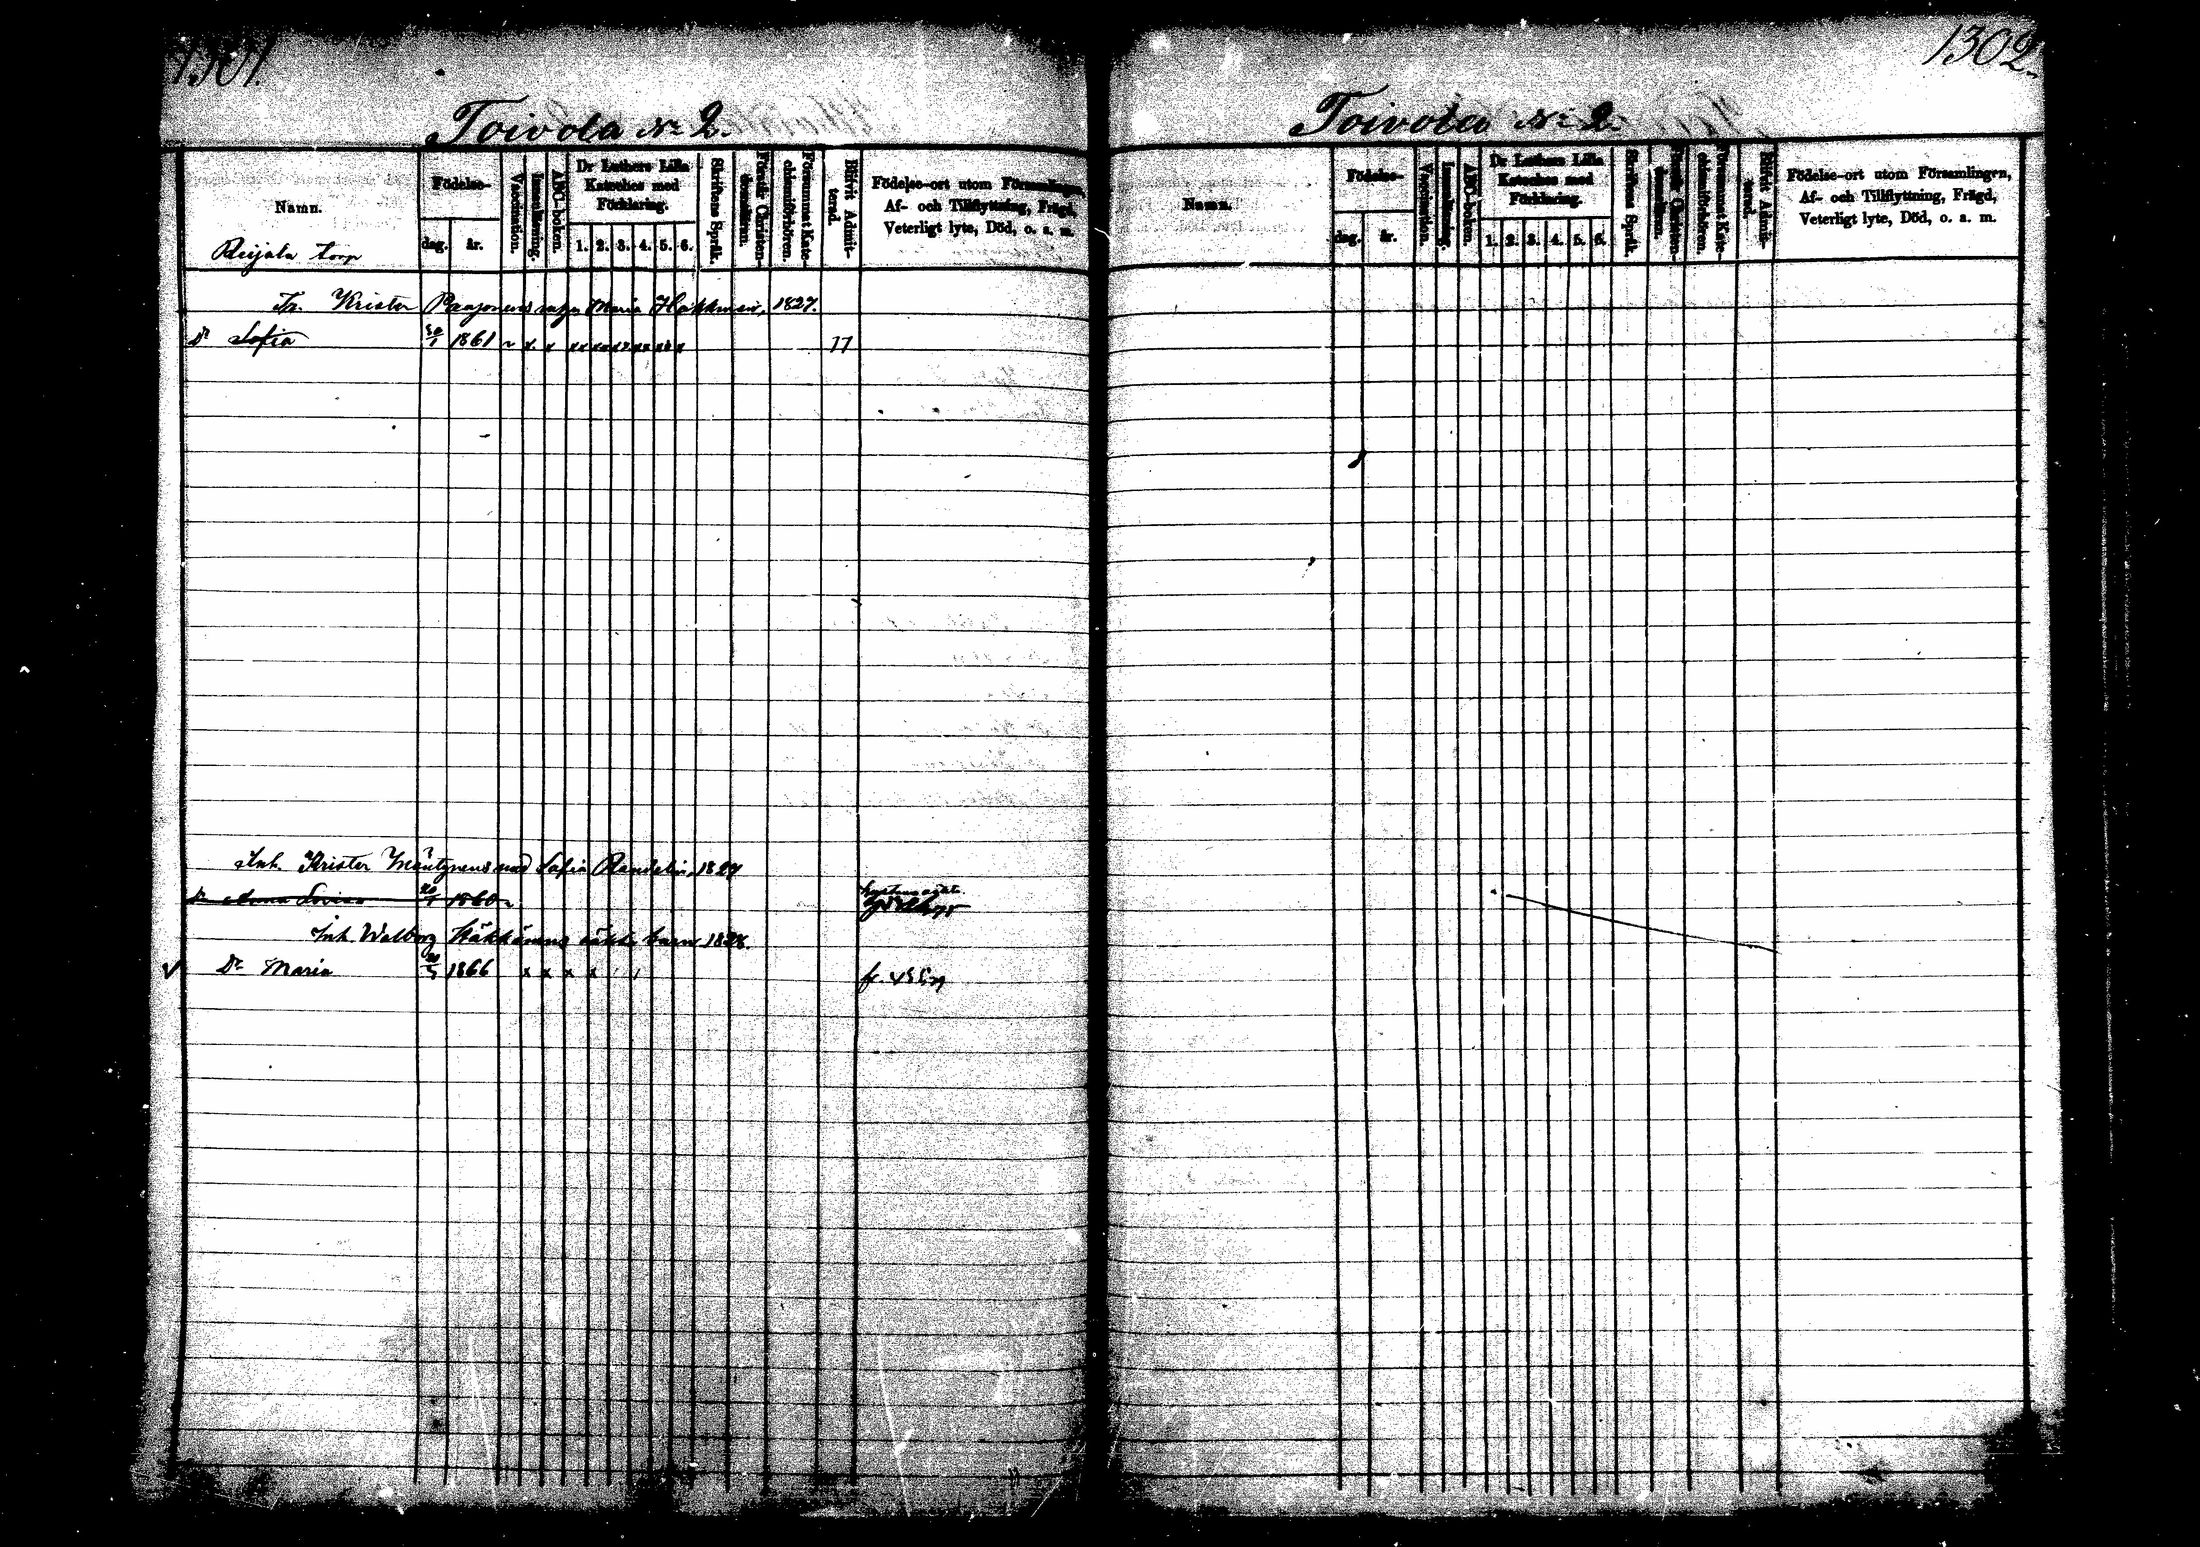 1301.
Toivola № 2.
Namn.
Födelse-
dag.
år.
Vaccination.
Innanläsning.
ABC-boken.
Dr Luthers Lilla
Kateches med
Förklaring.
1. 2. 3. 4. 5. 6.
Skriftens Språk.
Försök Christen-
domsläran.
Försummat Kate-
chismiförhören.
Blifvit Admit-
terad.
Födelse-ort utom Församlingen,
Af- och Tillflyttning, Frägd,
Veterligt lyte, Död, o. s. m.
Reijala torp
Tr. Krister Paajanens Maria Hakkmen, 1827.
Dr Sofia 30/1 1861 x x xx xx xx xx xx x 77
Inh. Krister Mäntynens Sofia Randelin, 1827
Dr Anna Lovisa 20/1 1860
Inh. Walborg Häkkänens barn 1828
√ Dr Maria 20/5 1866 x x x x
1302.
Toivola № 2.
Namn.
Födelse-
dag.
år.
Vaccination.
Innanläsning.
ABC-boken.
Dr Luthers Lilla
Kateches med
Förklaring.
1. 2. 3. 4. 5. 6.
Skriftens Språk.
Försök Christen-
domsläran.
Försummat Kate-
chismiförhören.
Blifvit Admit-
terad.
Födelse-ort utom Församlingen,
Af- och Tillflyttning, Frägd,
Veterligt lyte, Död, o. s. m.